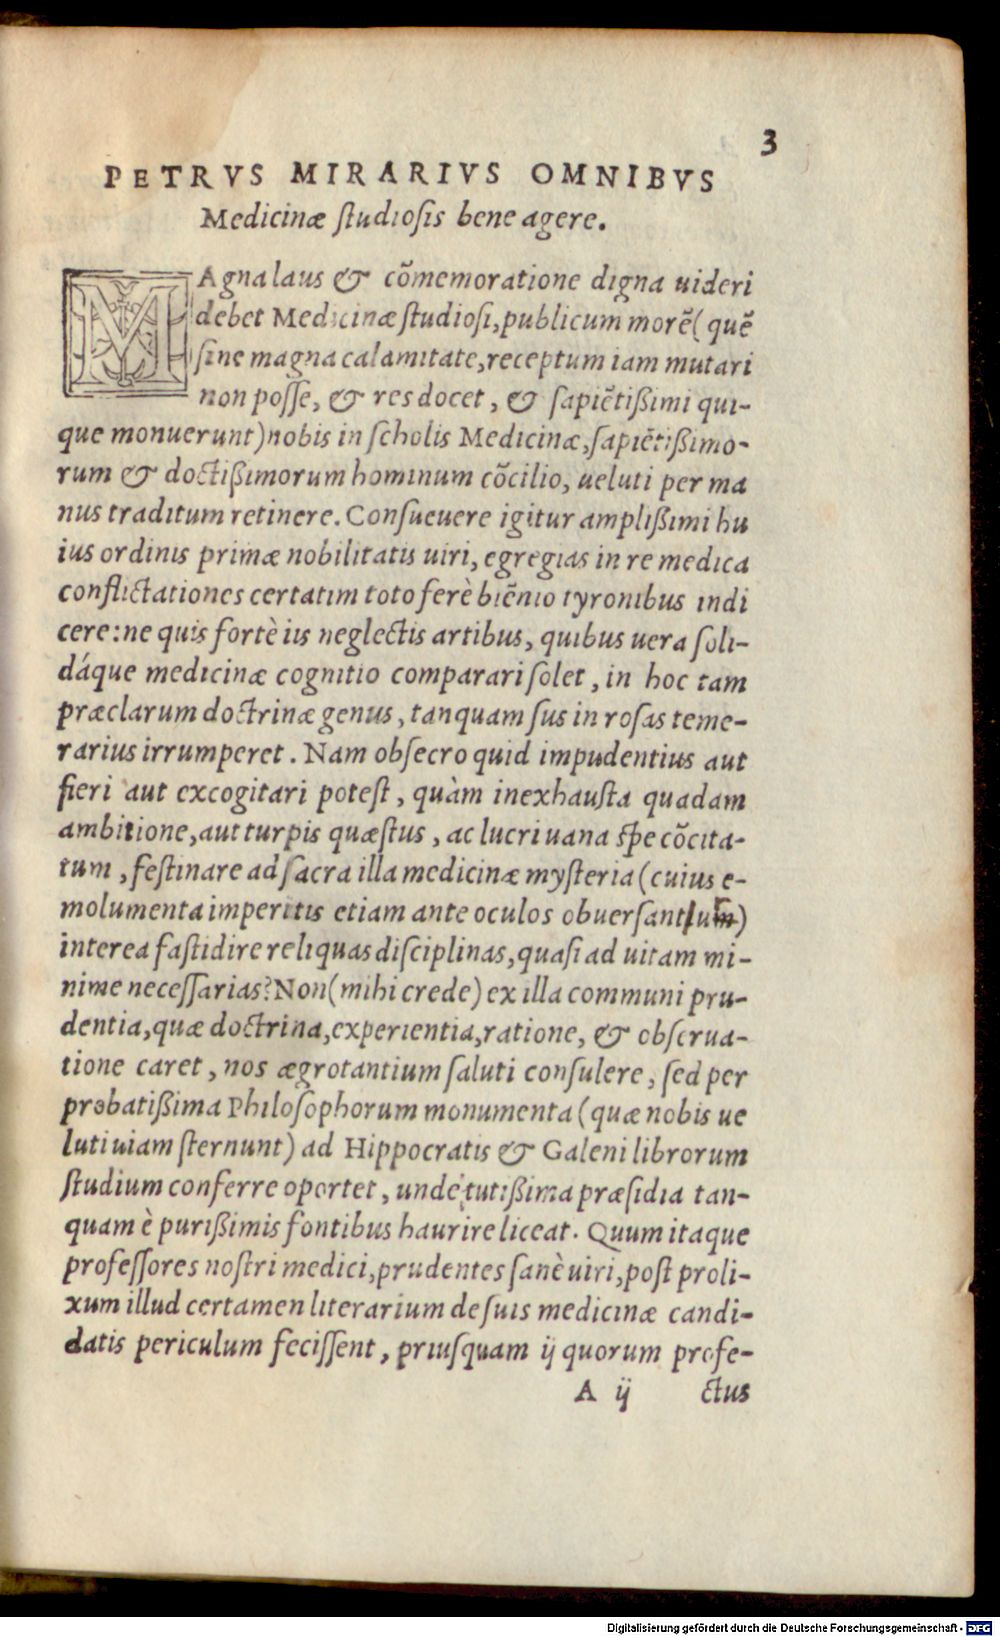 3
PETRVS MIRARIVS OMNIBVS
Medicinæ ſtudioſis bene agere.
MAgna laus & cõmemoratione digna uideri
debet Medicinæ ſtudioſi, publicum morẽ( quẽ
ſine magna calamitate, receptum iam mutari
non poſſe, & res docet, & ſapiẽtißimi qui-
que monuerunt) nobis in ſcholis Medicinæ, ſapiẽtißimo-
rum & doctißimorum hominum cõcilio, ueluti per ma
nus traditum retinere. Conſueuere igitur amplißimi hu
ius ordinis primæ nobilitatis uiri, egregias in re medica
conflictationes certatim toto ferè biẽnio tyronibus indi
cere: ne quis fortè iis neglectis artibus, quibus uera ſoli-
dáque medicinæ cognitio comparari ſolet, in hoc tam
præclarum doctrinæ genus, tanquam ſus in roſas teme-
rarius irrumperet. Nam obſecro quid impudentius aut
fieri aut excogitari poteſt, quàm inexhauſta quadam
ambitione, aut turpis quæſtus, ac lucri uana ſpe cõcita-
tum, feſtinare ad ſacra illa medicinæ myſteria (cuius e-
molumenta imperitis etiam ante oculos obuerſant)
interea faſtidire reliquas diſciplinas, quaſi ad uitam mi-
nime neceſſarias? Non (mihi crede) ex illa communi pru-
dentia, quæ doctrina, experientia, ratione, & obſerua-
tione caret, nos ægrotantium ſaluti conſulere, ſed per
probatißima Philoſophorum monumenta (quæ nobis ue
luti uiam ſternunt) ad Hippocratis & Galeni librorum
ſtudium conferre oportet, unde tutißima præſidia tan-
quam è purißimis fontibus haurire liceat. Quum itaque
profeſſores noſtri medici, prudentes ſanè uiri, poſt proli-
xum illud certamen literarium de ſuis medicinæ candi-
datis periculum feciſſent, priuſquam ij quorum profe-
A ij ctus
Digitalisierung gefördert durch die Deutsche Forschungsgemeinschaft - DFG